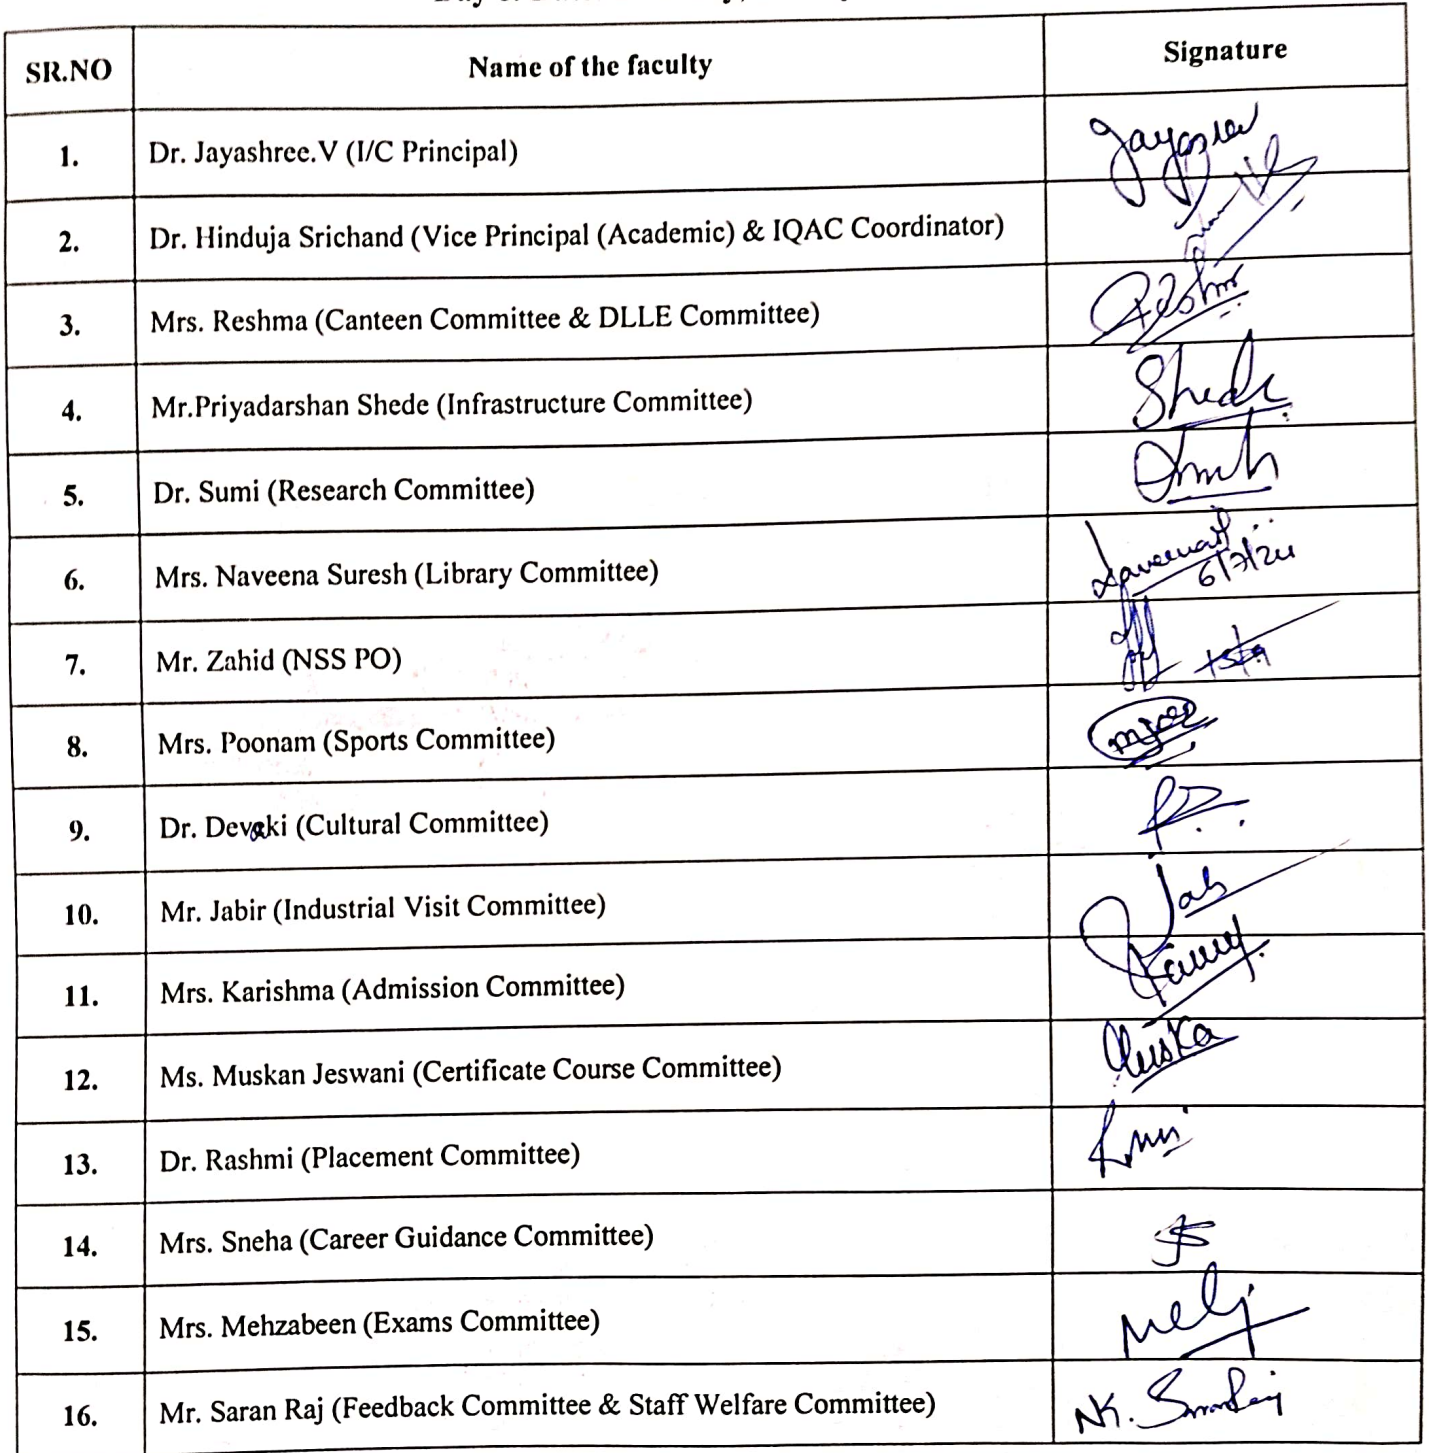 SR.NO Name of the faculty Signature
1. Dr. Jayashree.V (I/C Principal) Jayasree
2. Dr. Hinduja Srichand (Vice Principal (Academic) & IQAC Coordinator)
3. Mrs. Reshma (Canteen Committee & DLLE Committee) Reshma
4. Mr.Priyadarshan Shede (Infrastructure Committee) Shede
5. Dr. Sumi (Research Committee)
6. Mrs. Naveena Suresh (Library Committee) 6/7/24
7. Mr. Zahid (NSS PO)
8. Mrs. Poonam (Sports Committee)
9. Dr. Devaki (Cultural Committee)
10. Mr. Jabir (Industrial Visit Committee) Jab
11. Mrs. Karishma (Admission Committee)
12. Ms. Muskan Jeswani (Certificate Course Committee)
13. Dr. Rashmi (Placement Committee)
14. Mrs. Sneha (Career Guidance Committee)
15. Mrs. Mehzabeen (Exams Committee)
16. Mr. Saran Raj (Feedback Committee & Staff Welfare Committee) NK. SaranRaj